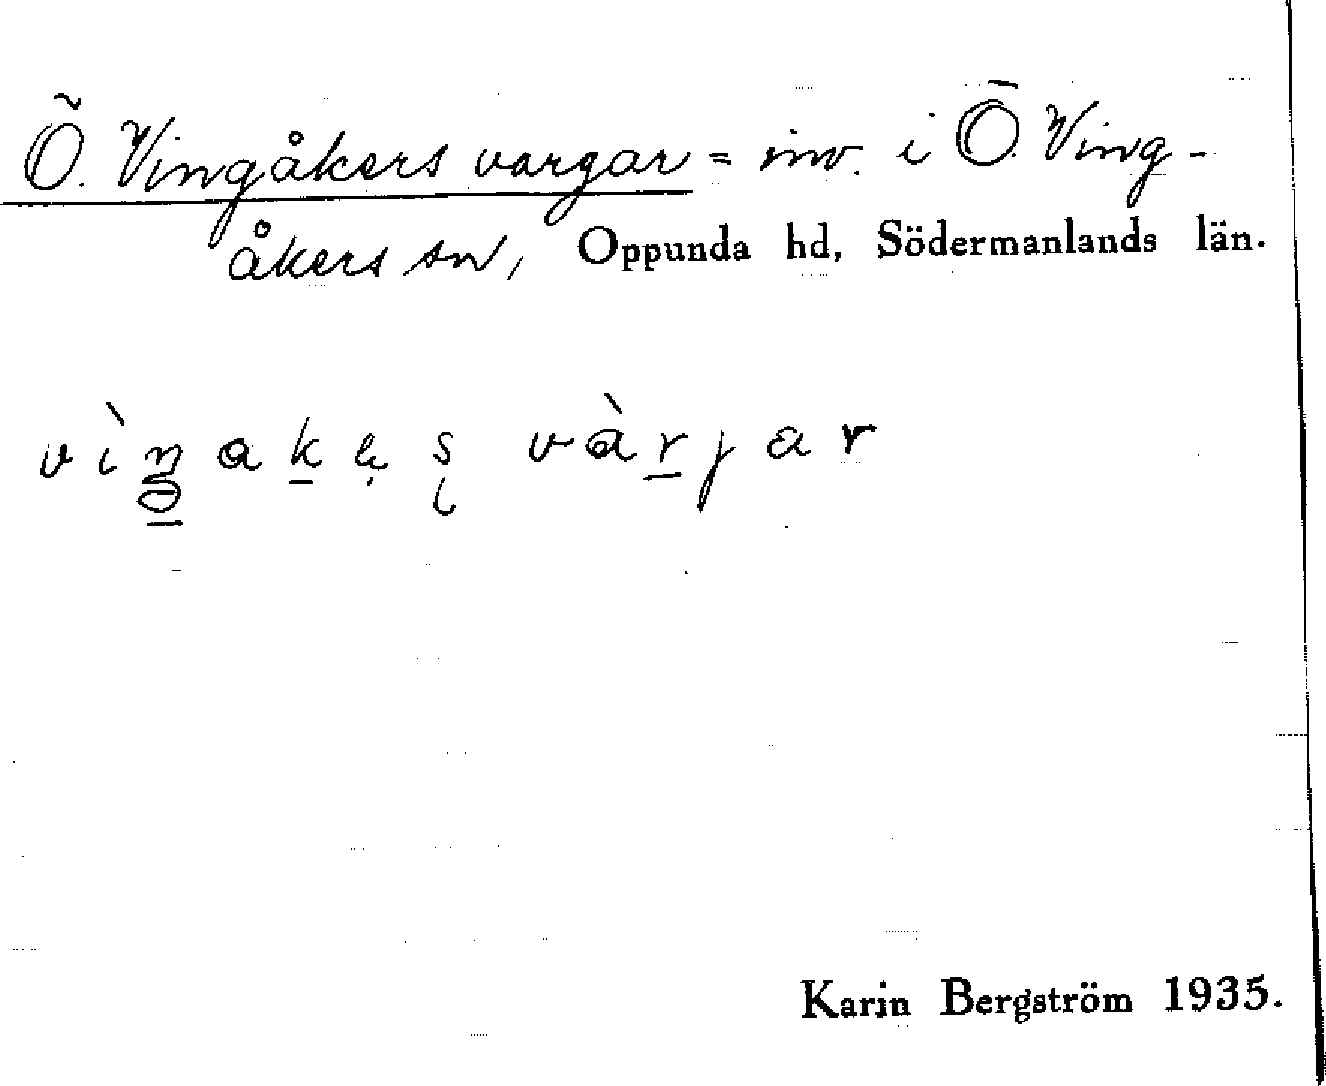 Ö. Vingåkers vargar = inv. i Ö. Ving-
åkers sn, Oppunda hd, Södermanlands län.
vàrjar
Karin Bergström 1935.